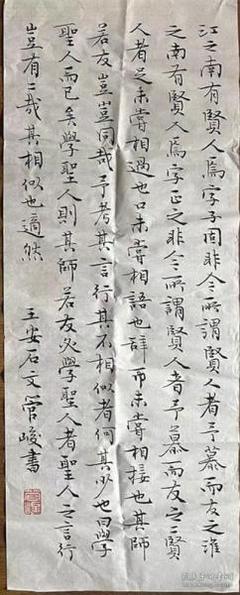 江之南有賢人焉字子固非今所謂賢人者予慕而友之淮
之南有賢人焉字正之非今所謂賢人者予慕而友之二賢
人者足未嘗相過也口未嘗相語也辭而未嘗相接也其師
若友豈豈同哉予考其言行其不相似者何其少也曰學
聖人而已矣學聖人則其師若友必學聖人者聖人之言行
豈有二哉其相似也適然
王安石文管峻書